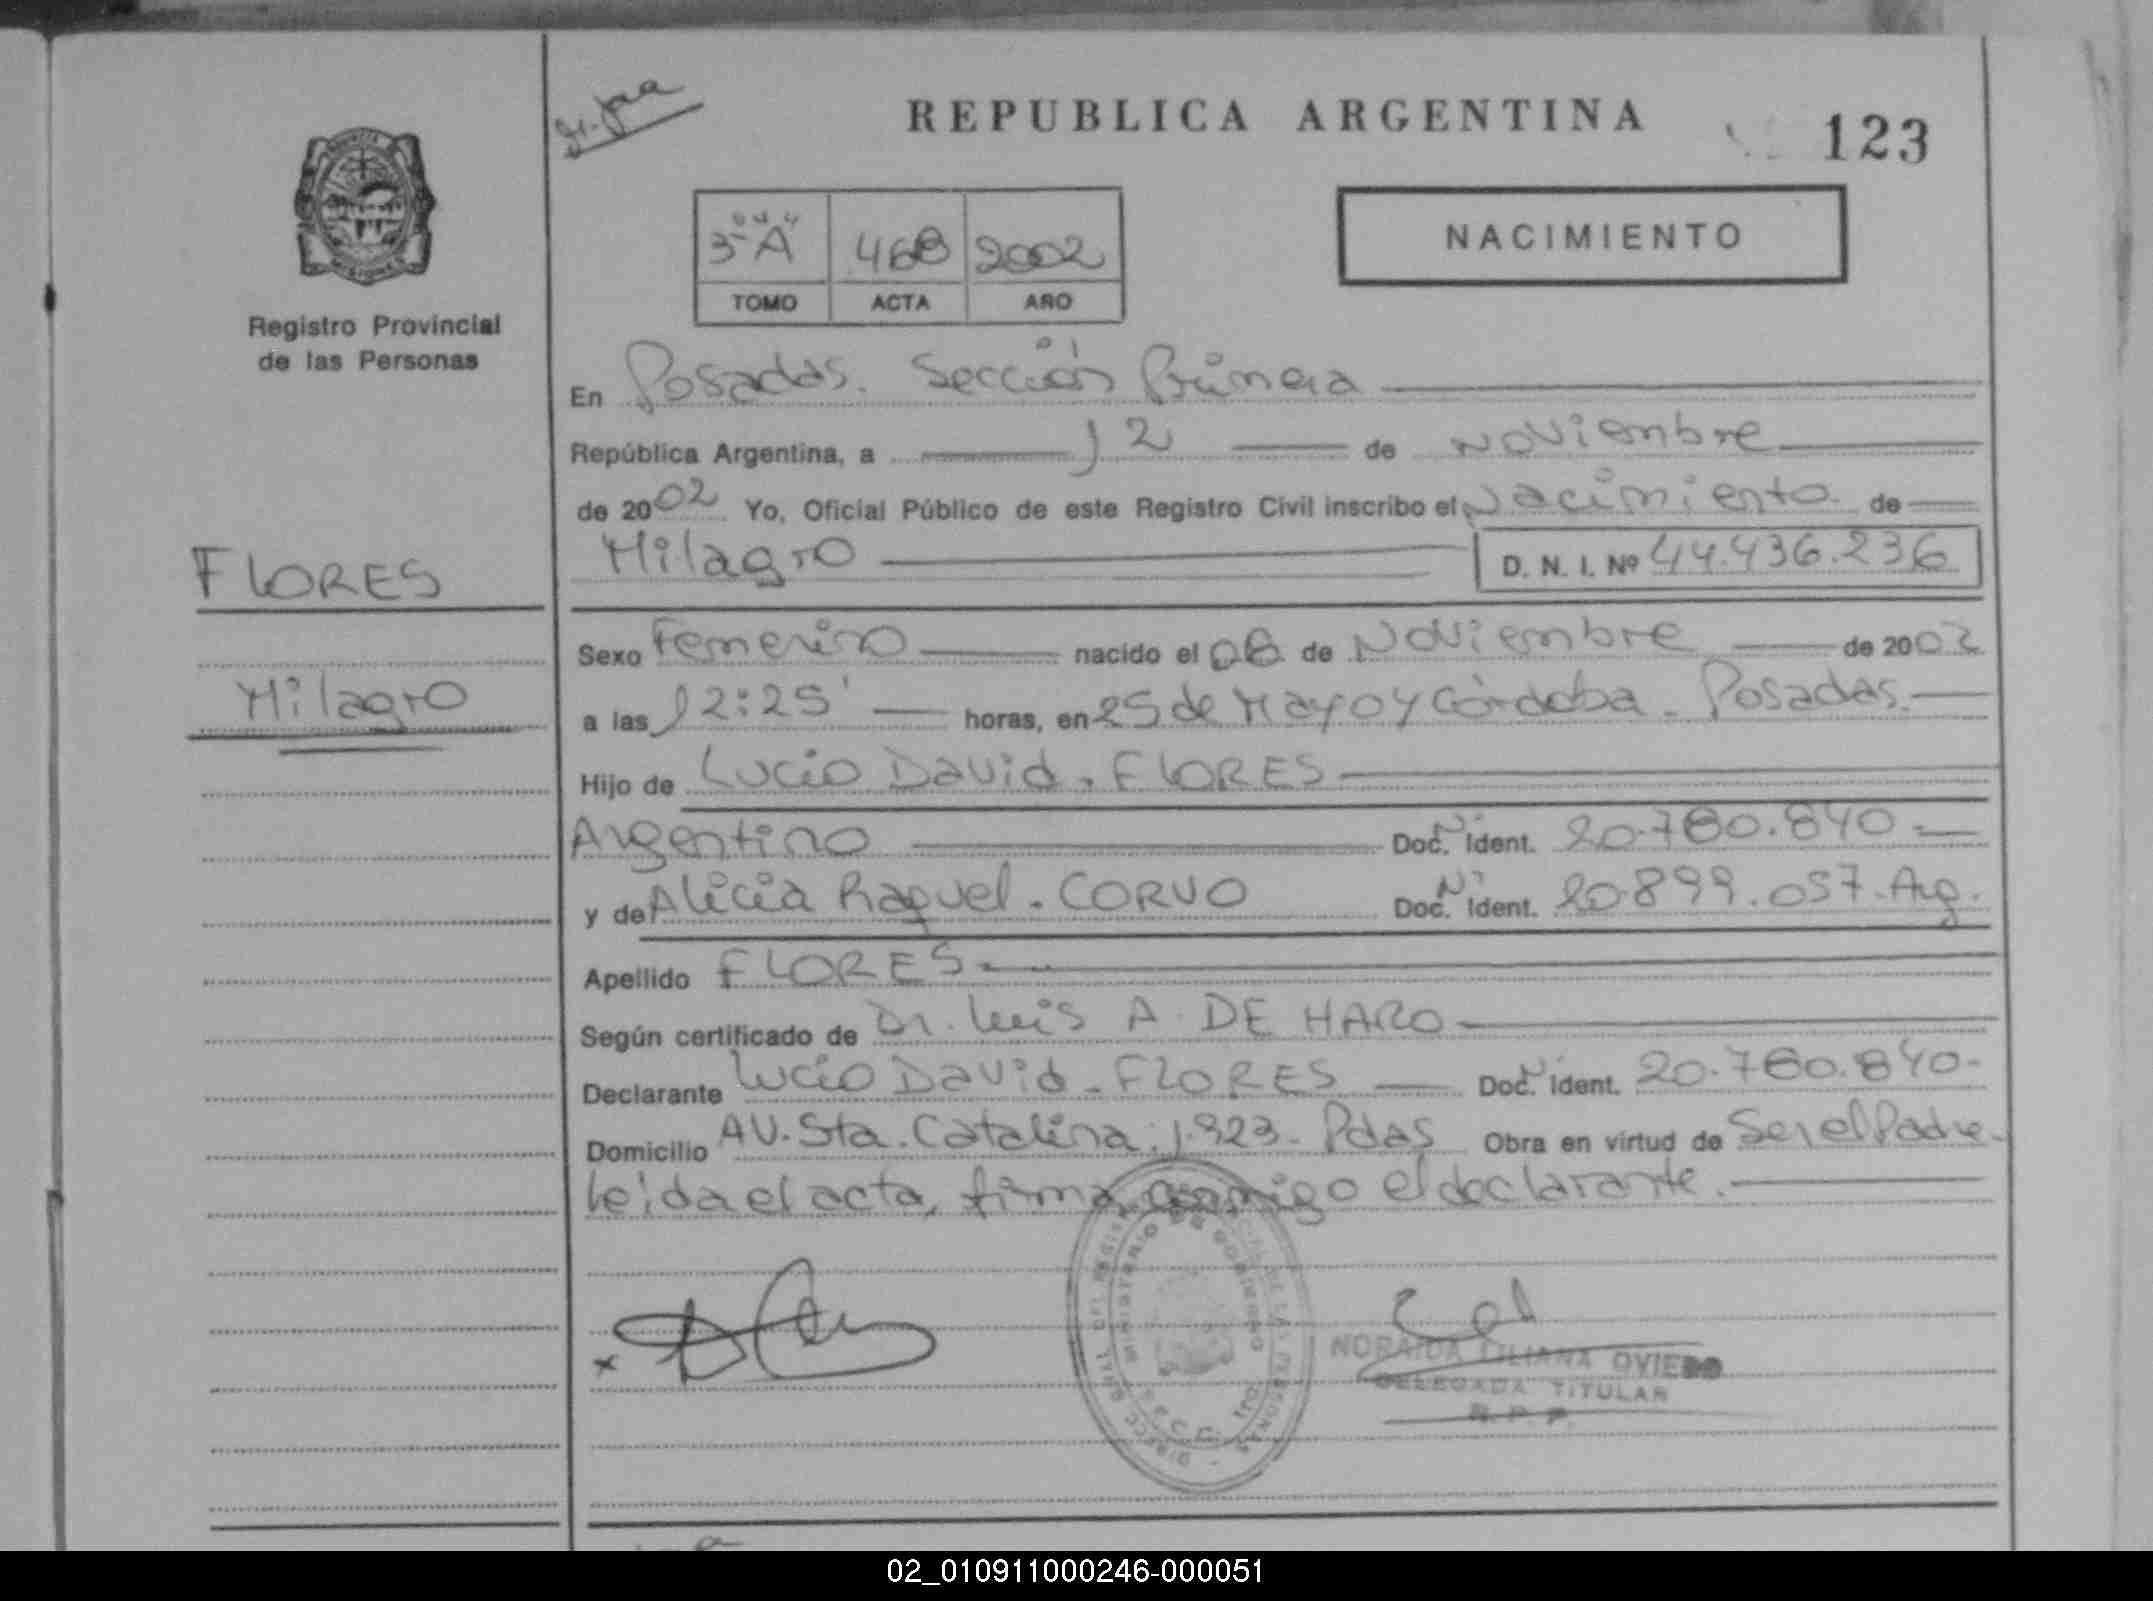 REPUBLICA ARGENTINA
123
3º "A" 468 2002
TOMO ACTA AÑO
NACIMIENTO
Registro Provincial
de las Personas
En Posadas. Sección Primera
República Argentina, a 12 de Noviembre
de 2002 Yo, Oficial Público de este Registro Civil inscribo el Nacimiento de
Milagro D. N. I. Nº 44.436.236
FLORES
Milagro
Sexo Femenino nacido el 08 de Noviembre de 2002
a las 12:25' horas, en 25 de Mayo y Córdoba. Posadas.
Hijo de Lucio David. FLORES
Argentino Doc. Nº Ident. 20.780.840.
y de Alicia Raquel. CORVO Doc. Nº Ident. 20.899.057. Arg.
Apellido FLORES.
Según certificado de Dr. Luis A. DE HARO
Declarante Lucio David. FLORES Doc. Nº Ident. 20.780.840.
Domicilio AV. Sta. Catalina. 1.923. Pdas Obra en virtud de Ser el Padre.
leida el acta, firma conmigo el declarante.
MINISTERIO DE GOBIERNO
NORAIDA LILIANA OVIEDO
DELEGADA TITULAR
R. P. P.
02_010911000246-000051